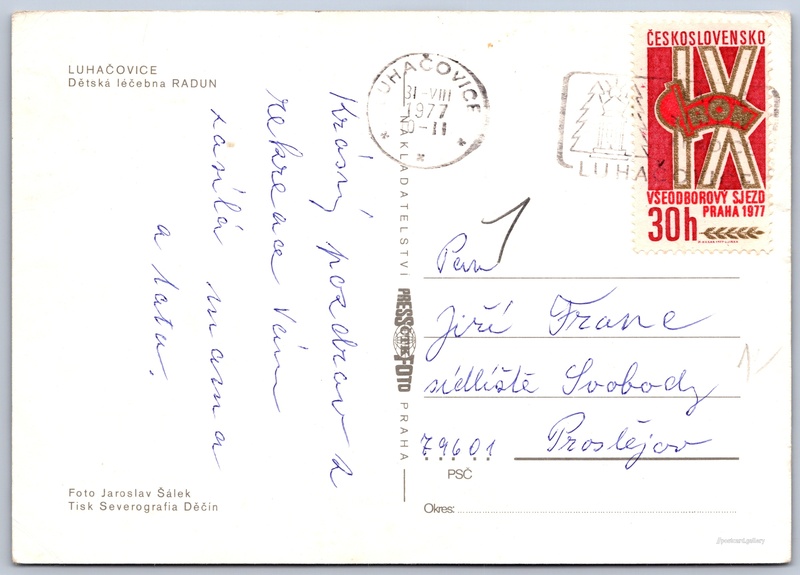 LUHAČOVICE
Dětská léčebna RADUN
Krásný pozdrav z
rekreace Vám
zasílá mama
a tata.
Foto Jaroslav Šálek
Tisk Severografia Děčín
NAKLADATELSTVÍ PRESSFOTO PRAHA
ČTK
LUHAČOVICE
31.-VIII
1977
LUHAČOV
ČESKOSLOVENSKO
IX
ROH
VŠEODBOROVÝ SJEZD
PRAHA 1977
30h
Pan
Jiří Franc
sídliště Svobody
79601 Prostějov
PSČ
Okres:
//postcard.gallery